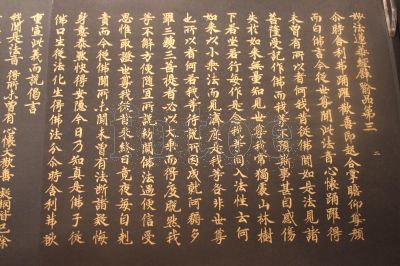 妙法蓮華經譬喻品第三
二
尒時舍利弗踊躍歡喜即起合掌瞻仰尊顏
而白佛言今從世尊聞此法音心懷踊躍得
未曾有所以者何我昔從佛聞如是法見諸
菩薩受記作佛而我等不預斯事甚自感傷
失於如來無量知見世尊我常獨處山林樹
下若坐若行每作是念我等同入法性云何
如來以小乘法而見濟度是我等咎非世尊
也所以者何若我等待說所因成就阿耨多
羅三藐三菩提者必以大乘而得度脫然我
等不解方便隨宜所說初聞佛法遇便信受
思惟取證世尊我從昔來終日竟夜每自剋
責而今從佛聞所未聞未曾有法斷諸疑悔
身意泰然快得安隱今日乃知真是佛子從
佛口生從法化生得佛法分尒時舍利弗欲
重宣此義而說偈言
我聞是法音 得所未曾有 心懷大歡喜 疑網皆已除